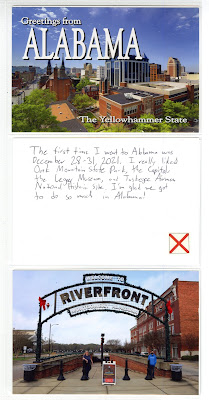 Greetings from
ALABAMA
The Yellowhammer State
The first time I went to Alabama was
December 28-31, 2021. I really liked
Oak Mountain State Park, the Capitol,
the Legacy Museum, and Tuskegee Airmen
National Historic Site. I'm glad we got
to do so much in Alabama!
RIVERFRONT